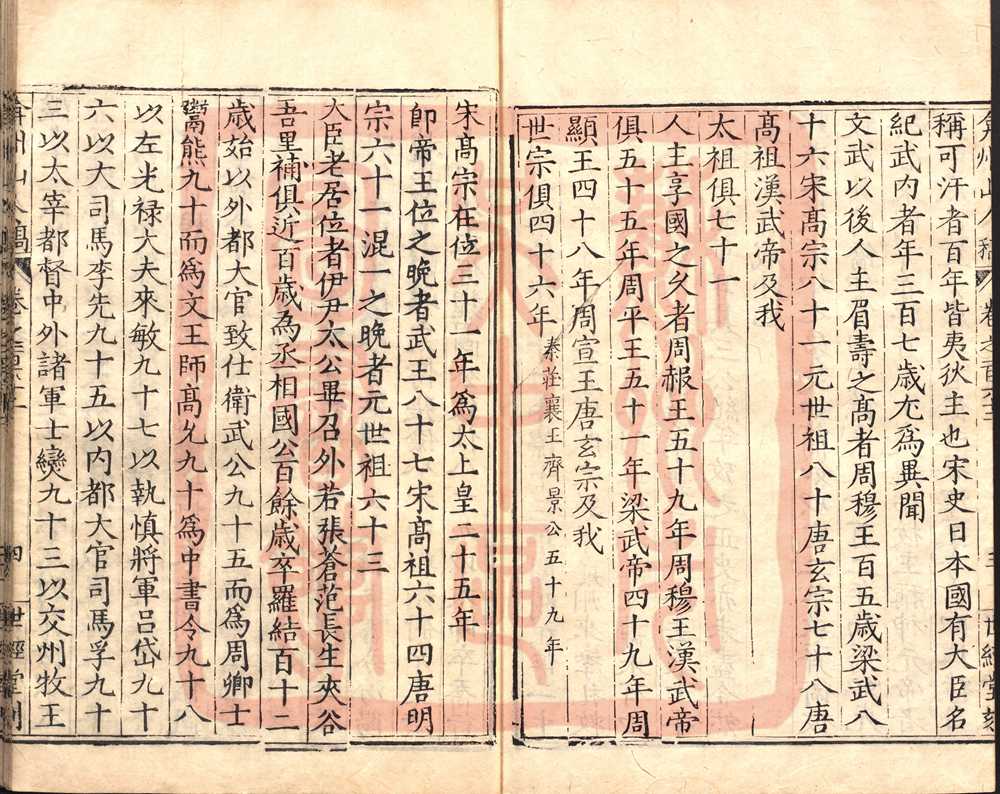 弇州山人稿 卷之百六十 三 世經堂刻
稱可汗者百年皆夷狄主也宋史日本國有大臣名
紀武內者年三百七歲尤爲異聞
文武以後人主眉壽之高者周穆王百五歲梁武八
十六宋髙宗八十一元世祖八十唐玄宗七十八唐
髙祖漢武帝及我
太祖俱七十一
人主享國之久者周赧王五十九年周穆王漢武帝
俱五十五年周平王五十一年梁武帝四十九年周
顯王四十八年周宣王唐玄宗及我
世宗俱四十六年 秦莊襄王齊景公五十九年
宋髙宗在位三十一年爲太上皇二十五年
卽帝王位之晚者武王八十七宋髙祖六十四唐明
宗六十一混一之晚者元世祖六十三
大臣老居位者伊尹太公畢召外若張蒼范長生夾谷
吾里補俱近百歲爲丞相國公百餘歲卒羅結百十二
歲始以外都大官致仕衛武公九十五而爲周卿士
鬻熊九十而爲文王師髙允九十爲中書令九十八
以左光禄大夫來敏九十七以執慎將軍呂岱九十
六以大司馬李先九十五以內都大官司馬孚九十
三以太宰都督中外諸軍士燮九十三以交州牧王
弇州山人稿 卷之百 四 世經堂刻